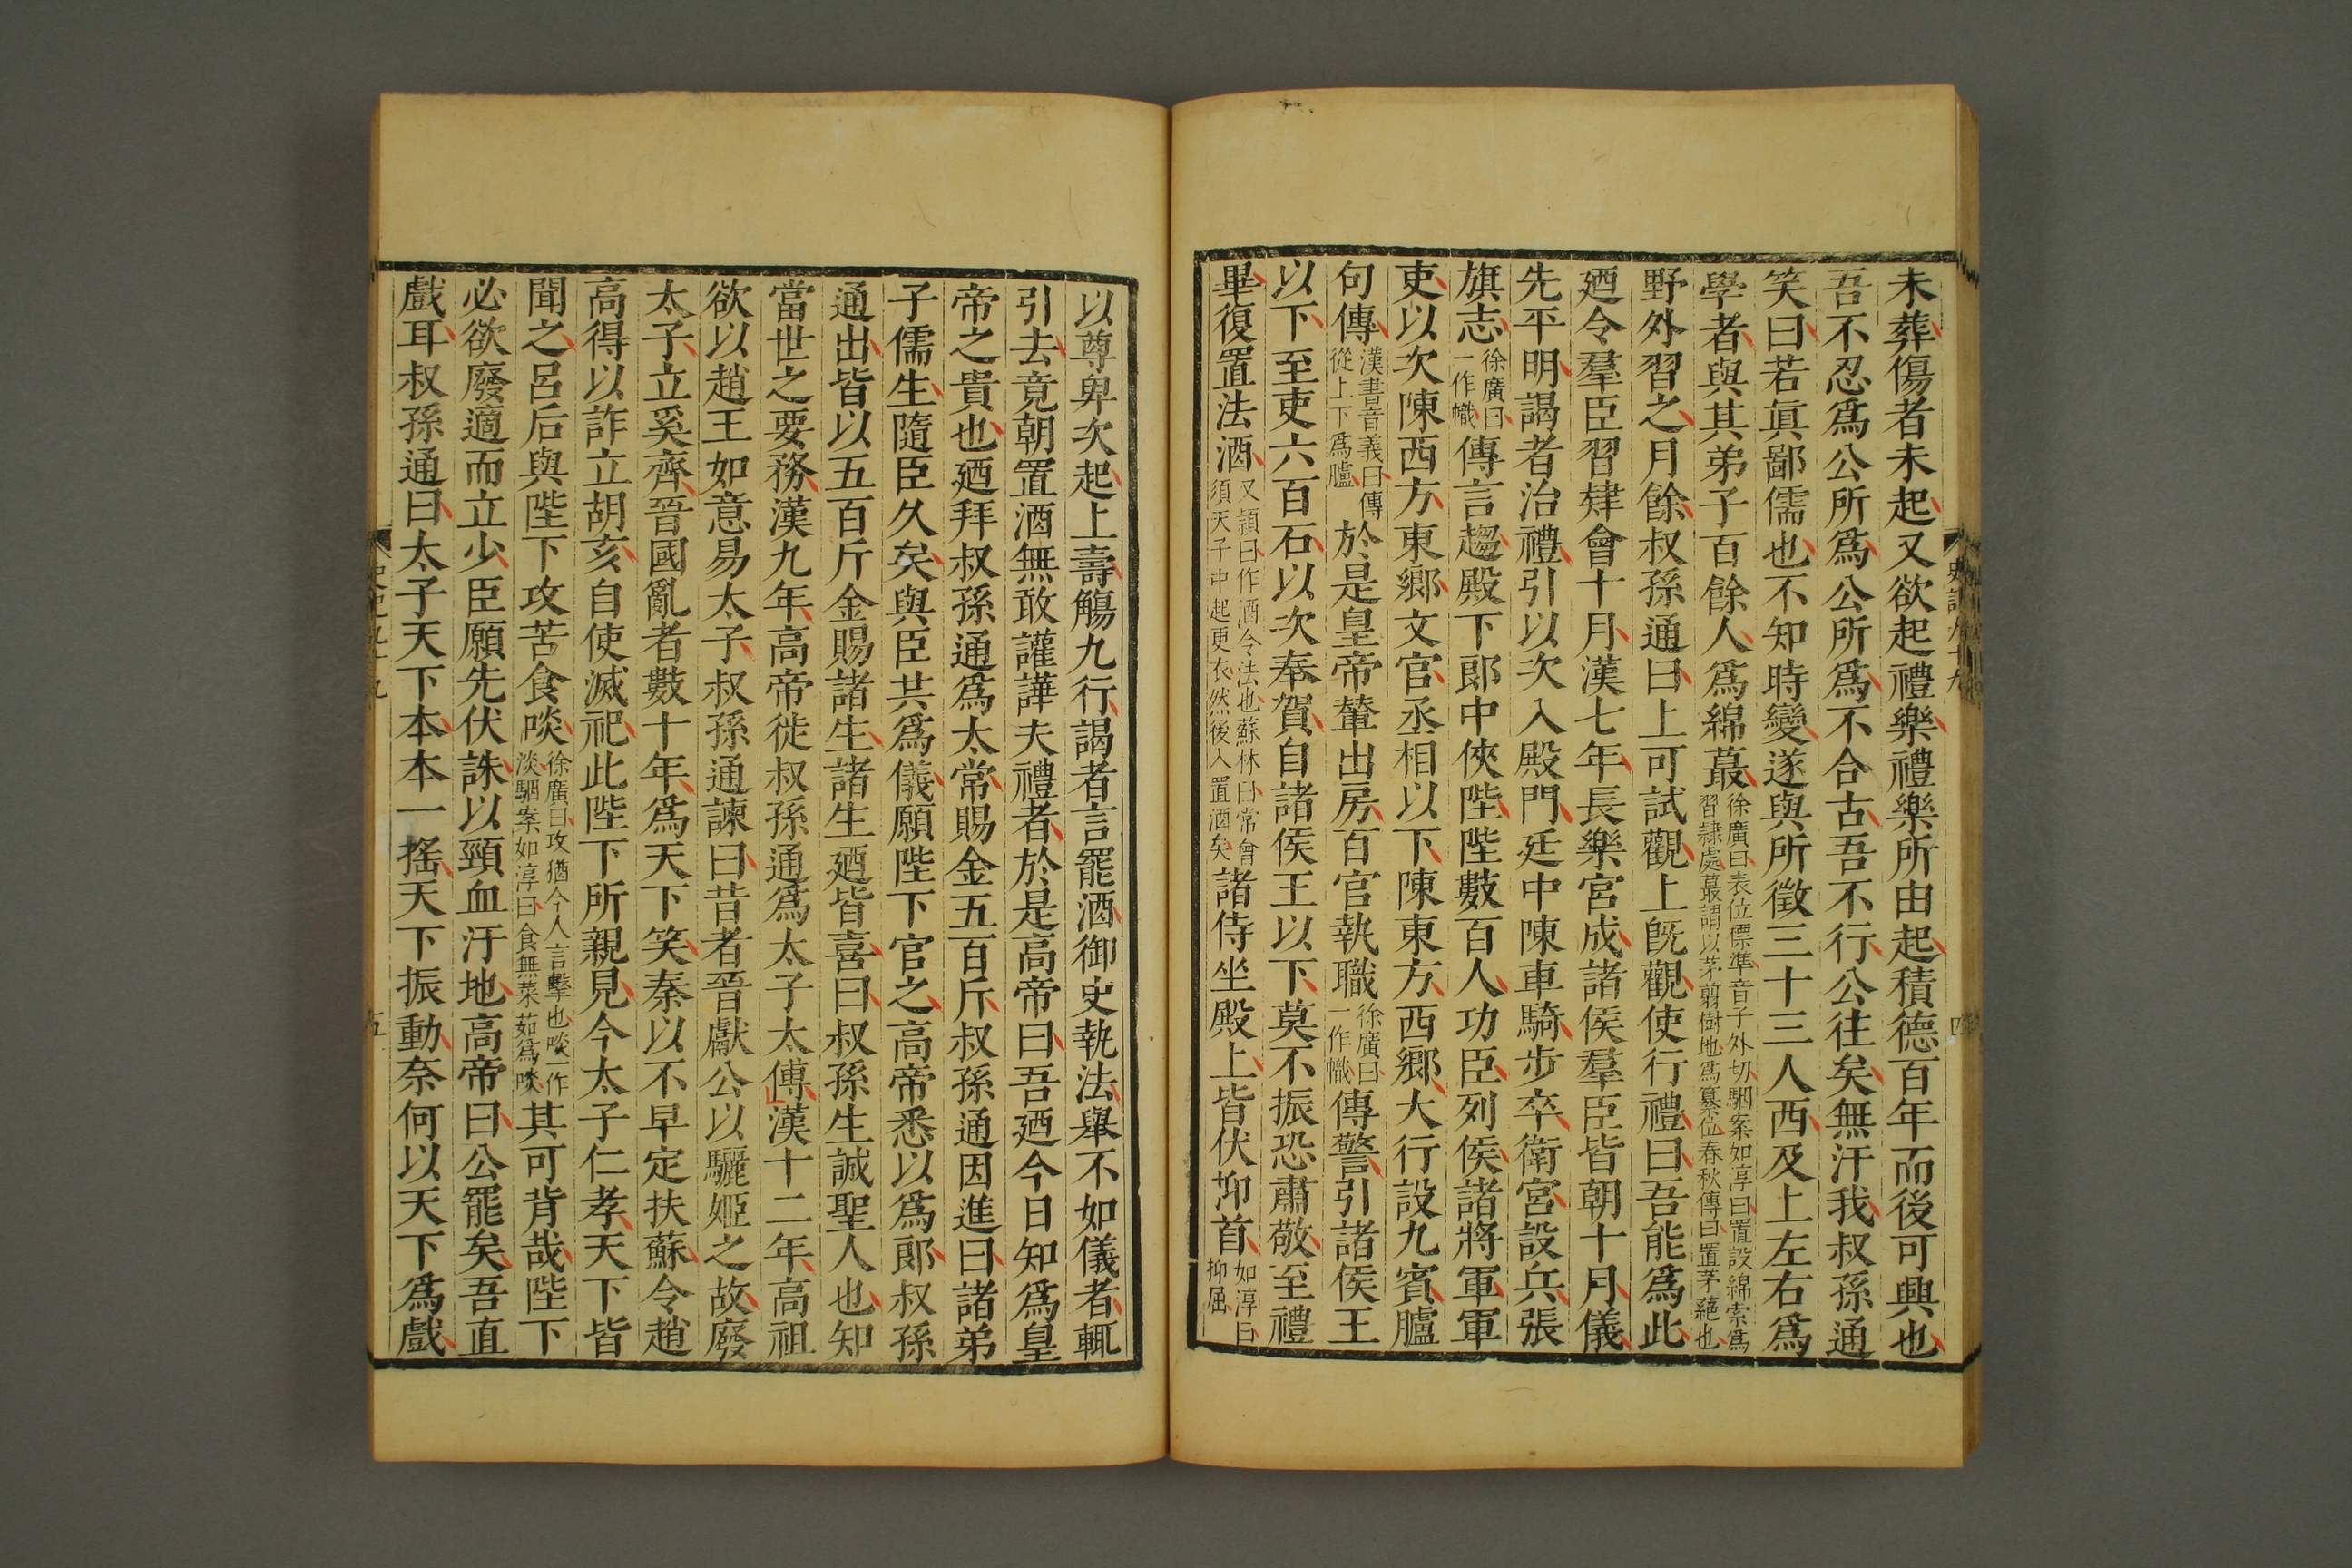 未葬傷者未起又欲起禮樂禮樂所由起積德百年而後可興也
吾不忍爲公所爲公所爲不合古吾不行公往矣無汙我叔孫通
笑曰若眞鄙儒也不知時變遂與所徵三十三人西及上左右爲
學者與其弟子百餘人爲綿蕞徐廣曰表位標準音子外切駰案如淳曰置設綿索爲習隷處蕞謂以茅翦樹地爲纂位春秋傳曰置茅蕝也
野外習之月餘叔孫通曰上可試觀上旣觀使行禮曰吾能爲此
廼令羣臣習肄會十月漢七年長樂宮成諸侯羣臣皆朝十月儀
先平明謁者治禮引以次入殿門廷中陳車騎步卒衛宮設兵張
旗志徐廣曰一作幟傳言趨殿下郎中俠陛陛數百人功臣列侯諸將軍軍
吏以次陳西方東鄉文官丞相以下陳東方西鄉大行設九賓臚
句傳漢書音義曰傳從上下爲臚於是皇帝輦出房百官執職徐廣曰一作幟傳警引諸侯王
以下至吏六百石以次奉賀自諸侯王以下莫不振恐肅敬至禮
畢復置法酒文穎曰作酒令法也蘇林曰常會須天子中起更衣然後入置酒矣諸侍坐殿上皆伏抑首如淳曰抑屈
史記九十九
四
以尊卑次起上壽觴九行謁者言罷酒御史執法舉不如儀者輒
引去竟朝置酒無敢讙譁失禮者於是高帝曰吾廼今日知爲皇
帝之貴也廼拜叔孫通爲太常賜金五百斤叔孫通因進曰諸弟
子儒生隨臣久矣與臣共爲儀願陛下官之高帝悉以爲郎叔孫
通出皆以五百斤金賜諸生諸生廼皆喜曰叔孫生誠聖人也知
當世之要務漢九年高帝徙叔孫通爲太子太傅漢十二年高祖
欲以趙王如意易太子叔孫通諫曰昔者晉獻公以驪姬之故廢
太子立奚齊晉國亂者數十年爲天下笑秦以不早定扶蘇令趙
高得以詐立胡亥自使滅祀此陛下所親見今太子仁孝天下皆
聞之呂后與陛下攻苦食啖徐廣曰攻猶今人言擊也啖一作淡駰案如淳曰食無菜茹爲啖其可背哉陛下
必欲廢適而立少臣願先伏誅以頸血汙地高帝曰公罷矣吾直
戲耳叔孫通曰太子天下本本一搖天下振動奈何以天下爲戲
史記九十九
五